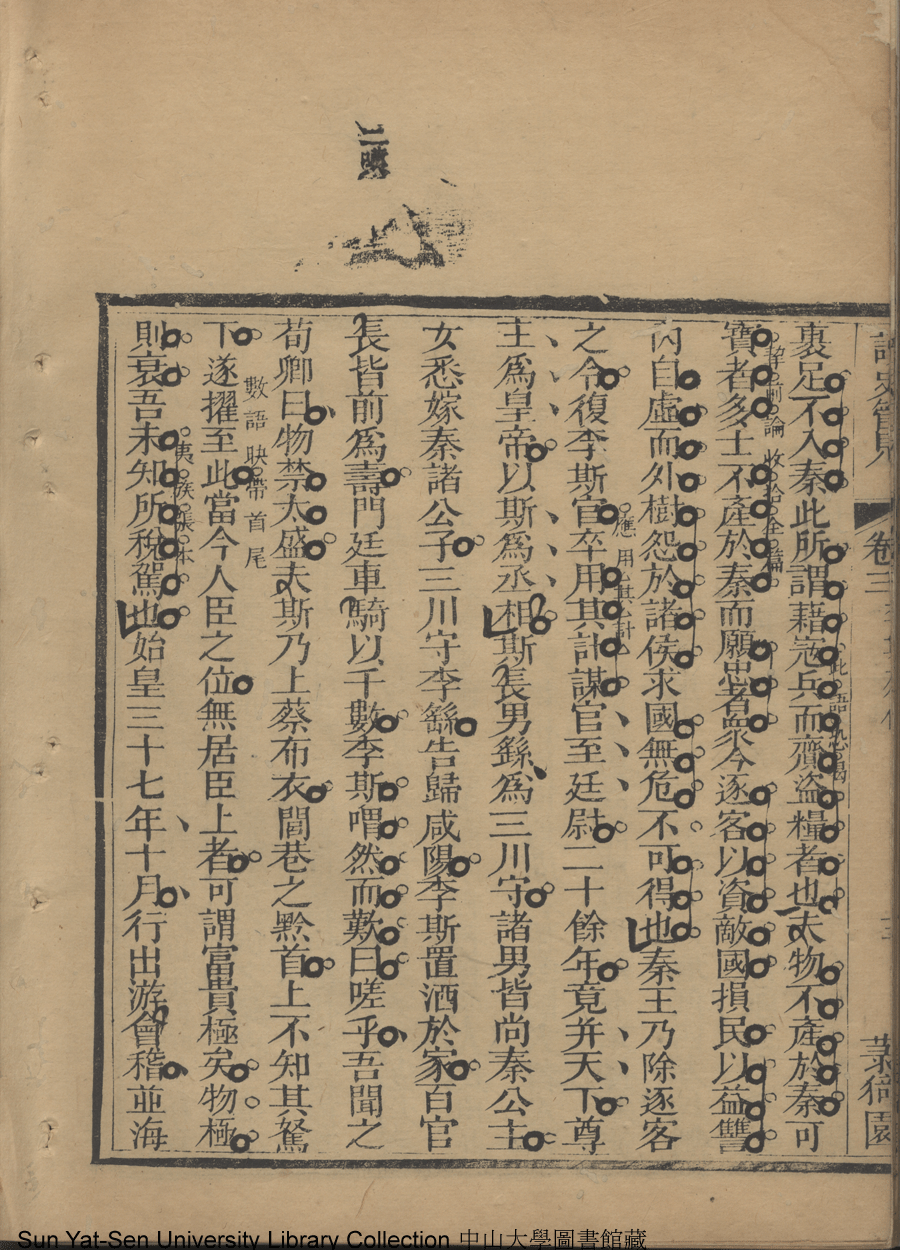 卷三
菉猗園
裹足不入秦此所謂藉寇兵而齎盜糧者也夫物不產於秦可
寶者多士不產於秦而願忠者衆今逐客以資敵國損民以益讐
內自虛而外樹怨於諸侯求國無危不可得也秦王乃除逐客
之令復李斯官卒用其計謀官至廷尉二十餘年竟并天下尊
主爲皇帝以斯爲丞相斯長男繇爲三川守諸男皆尚秦公主
女悉嫁秦諸公子三川守李繇告歸咸陽李斯置酒於家百官
長皆前爲壽門廷車騎以千數李斯喟然而歎曰嗟乎吾聞之
荀卿曰物禁太盛夫斯乃上蔡布衣閭巷之黔首上不知其駑
數語映帶首尾
下遂擢至此當今人臣之位無居臣上者可謂富貴極矣物極
夷族張本
則衰吾未知所稅駕也始皇三十七年十月行出游會稽並海
應用其計
收拾全篇
Sun Yat-Sen University Library Collection 中山大學圖書館藏